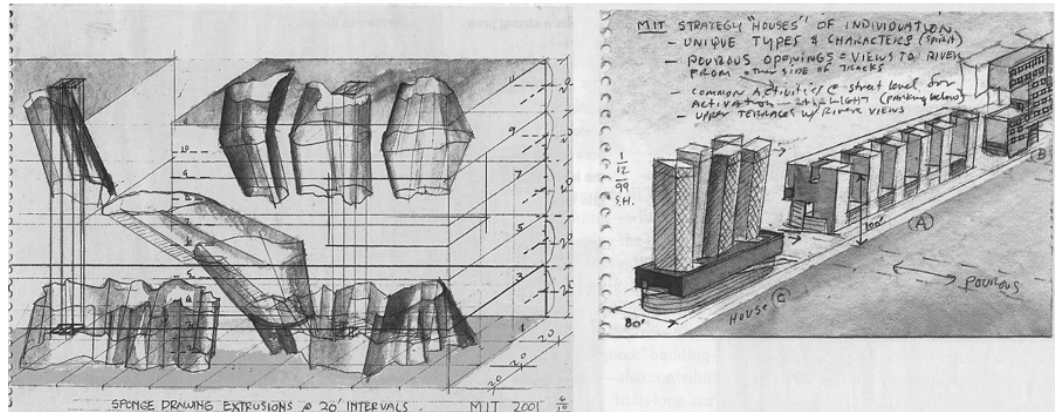 SPONGE DRAWING EXTRUSIONS @ 20' INTERVALS. MIT 2001
10
9
8
6
5
4
11
9
7
5
3
1
20
20
20
MIT STRATEGY "HOUSES" OF INDIVIDUATION
- UNIQUE TYPES & CHARACTERS (SPIRIT)
- POUROUS OPENINGS = VIEWS TO RIVER
FROM other SIDE OF TRACKS
- COMMON ACTIVITIES @ street LEVEL for
ACTIVATION - 24 HR LIGHT (parking below)
- UPPER TERRACES w/ RIVER VIEWS
1
12
99
S.H.
B
100'
A
POUROUS
HOUSE C
80'